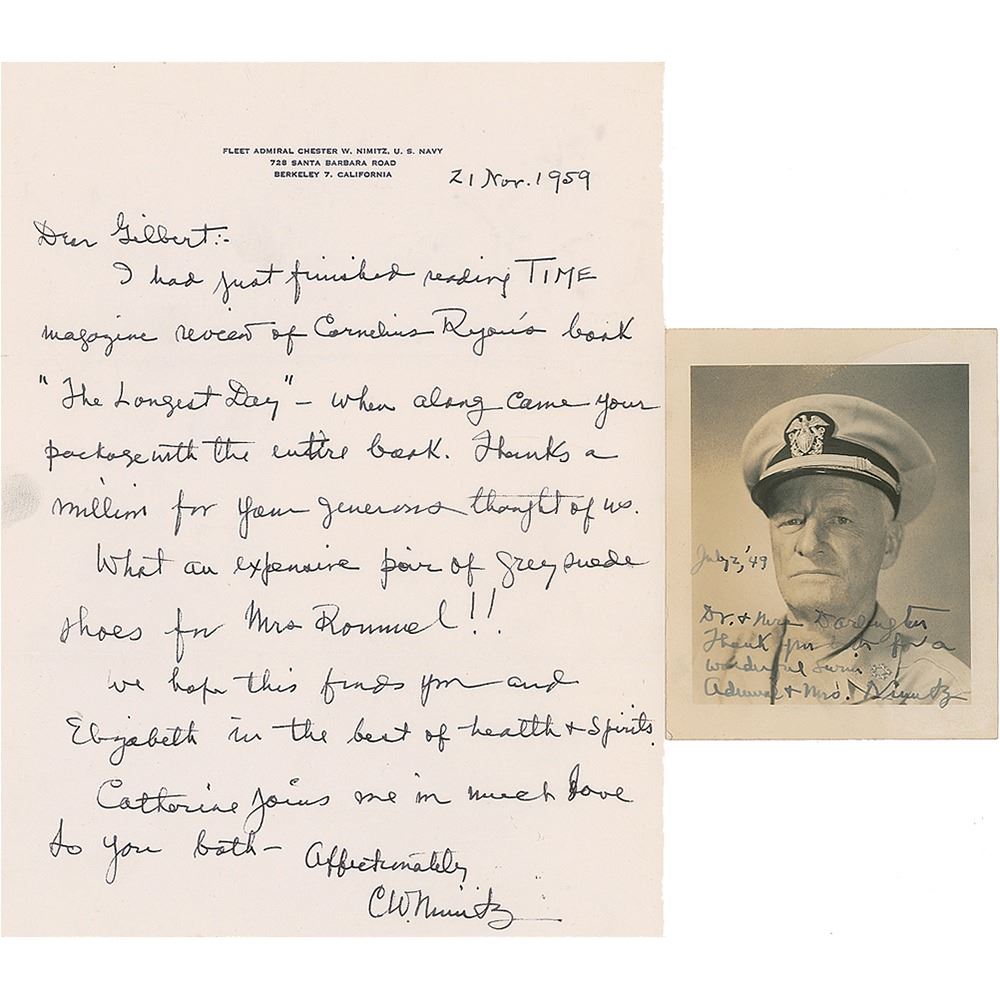 FLEET ADMIRAL CHESTER W. NIMITZ, U. S. NAVY
728 SANTA BARBARA ROAD
BERKELEY 7, CALIFORNIA
21 Nov. 1959
Dear Gilbert:-
I had just finished reading TIME
magazine review of Cornelius Ryan's book
"The Longest Day" – when along came your
package with the entire book. Thanks a
million for your generous thought of us.
What an expensive pair of grey suede
shoes for Mrs Rommel!!
We hope this finds you and
Elizabeth in the best of health & spirits.
Catherine joins me in much love
to you both –
Affectionately
C.W. Nimitz
July 2, '49
Dr. & Mrs Darlington
Thank you both for a
wonderful swim
Admiral & Mrs. Nimitz